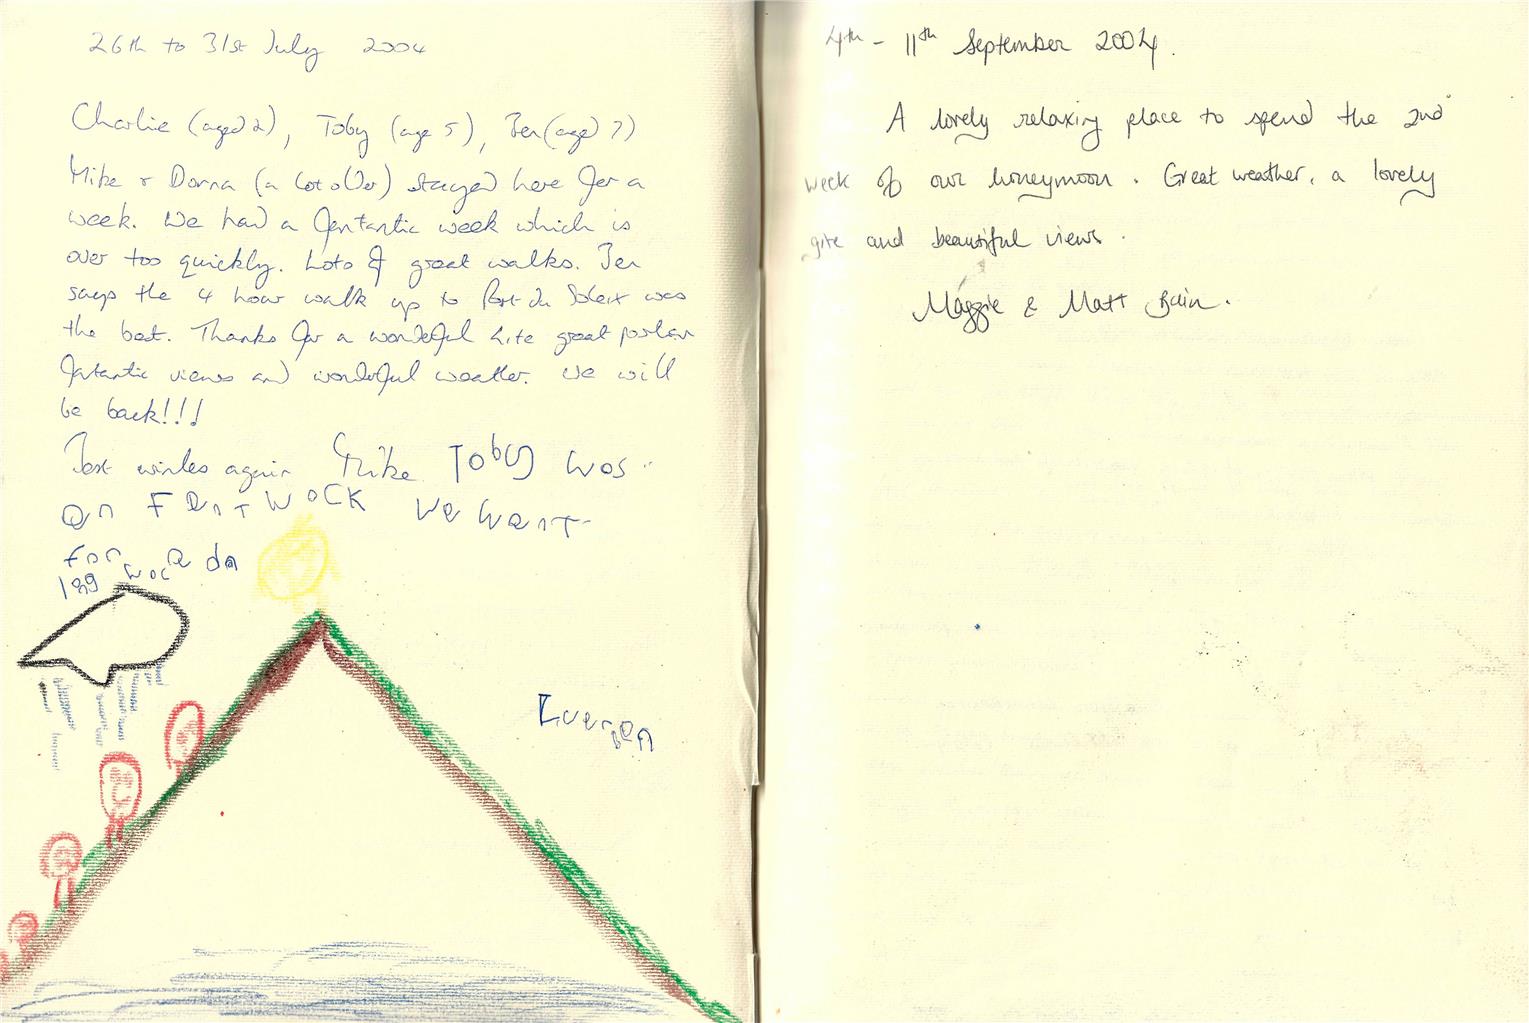 26th to 31st July 2004
Charlie (aged 2), Toby (age 5), Ben (aged 7)
Mike + Donna (a lot older) stayed here for a
week. We had a fantastic week which is
over too quickly. Lots of great walks. Ben
says the 4 hour walk up to Port du was
the best. Thanks for a wonderful Gite great
fantastic views and wonderful weather. We will
be back!!!
Best wishes again Mike TOBY WOS
on FERST WOCK We Went
for
log woc
4th - 11th September 2004.
A lovely relaxing place to spend the 2nd
week of our honeymoon. Great weather, a lovely
gite and beautiful views.
Maggie & Matt Bain.